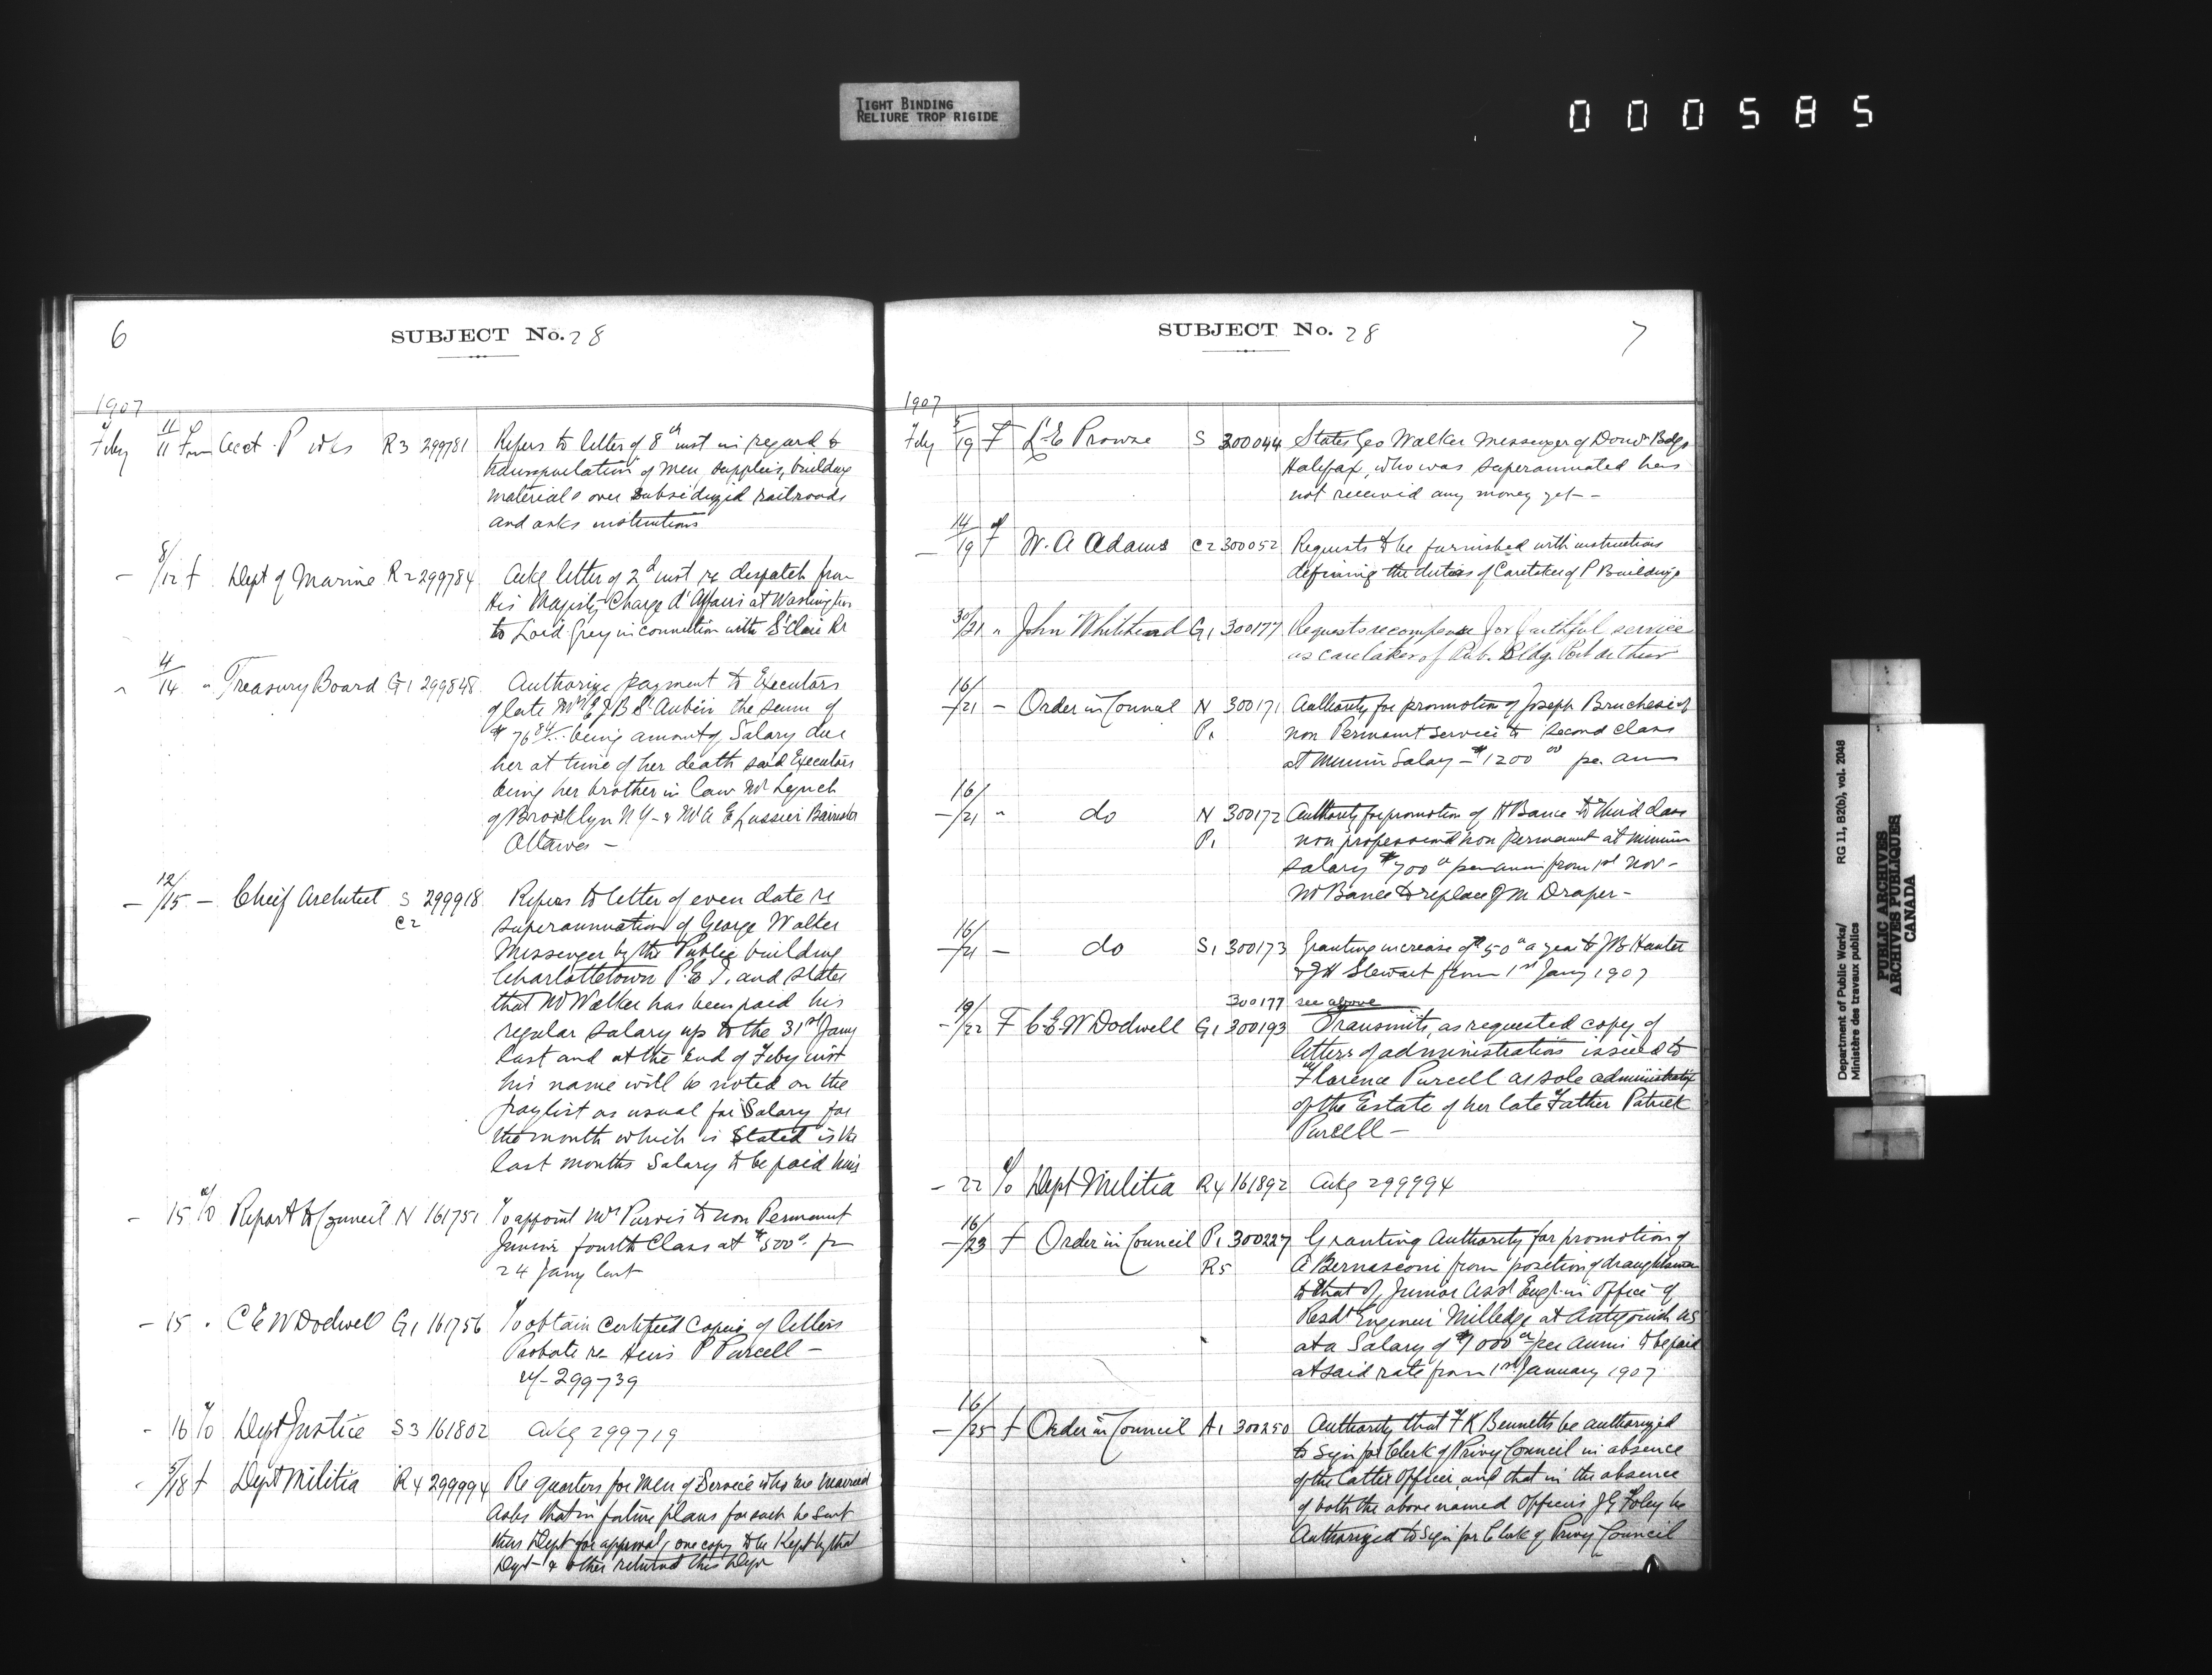 TIGHT BINDING
RELIURE TROP RIGIDE
000585
6
SUBJECT No. 28
1907
Feby 11/11 Fm Acct P Wks R3 299781 Refers to letter of 8th inst in regard to
transportation of men, supplies, building
materials over subsidized railroads
and asks instructions
- 8/12 f Dept of Marine R2 299784 Ackg letter of 2d inst re despatch from
His Majesty Charge d'Affairs at Washington
to Lord Grey in connection with St Clair Rr
" 4/14 " Treasury Board G1 299848 Authorize payment to Executors
of late Mrs E J B St Aubin the sum of
$76 84/.. being amount of Salary due
her at time of her death said Executors
being her brother in law Mr Lynch
of Brooklyn N Y - & Mr A E Lussier Barrister
Ottawa -
- 12/15 - Chief Architect S 299918 Refers to letter of even date re
C2 superannuation of George Walker
Messenger by the Public building
Charlottetown P.E.I. and states
that Mr Walker has been paid his
regular salary up to the 31st Jany
last and at the end of Feby inst
his name will be noted on the
paylist as usual for Salary for
the month which is stated is the
last months Salary to be paid him
- 15 o/o Report to Council N 161751 To appoint Mr Purvis to non Permanent
Junior fourth Class at $500 fr
24 Jany last
- 15 " C E W Dodwell G1 161756 To obtain Certified Copies of letters
Probate re Heirs P Purcell -
ref - 299739
- 16 o/o Dept Justice S3 161802 Ackg 299719
" 5/18 f Dept Militia R4 299994 Re quarters for men of Service who are married
Asks that in future plans for such be sent
their Dept for approval, one copy to be Kept by that
Dept - & other returned this Dept
SUBJECT No. 28
7
1907
Feby 5/19 F L E Prowse S 300044 States Geo Walker Messenger of Domn Bdgs
Halifax, who was superannuated has
not received any money yet -
- 14/19 f W. A Adams C2 300052 Requests to be furnished with instructions
defining the duties of Caretaker of P Buildings
30/21 " John Whitehead G1 300177 Requests recompense for faithful service
as caretaker of Pub. Bldg. Port Arthur
16/21 - Order in Council N 300171 Authority for promotion of Joseph Bruchesi of
P1 non Permanent Service to Second Class
at Minim Salary - $1200 00 per ann
16/21 " do N 300172 Authority for promotion of H Bance to third class
P1 non professional non Permanent at minimum
salary $700 per ann from 1st Nov -
Mr Bance to replace J M Draper -
16/21 - do S1 300173 Granting increase of $50 a year to J B Hunter
& J H Stewart from 1st Jany 1907
300177 see above
- 19/22 F C. E. W Dodwell G1 300193 Transmits, as requested copy of
letters of administration issued to
Florence Purcell as sole administratrix
of the Estate of her late Father Patrick
Purcell -
- 22 o/o Dept Militia R4 161892 Ackg 299994
16/23 f Order in Council P1 300227 Granting Authority for promotion of
R5 A Bernasconi from position of draughtsman
to that of Junior Asst Engr in Office of
Resdt Engineer Milledge at Antigonish NS
at a Salary of $1000 per Annm to be paid
at said rate from 1st January 1907
16/25 f Order in Council A1 300250 Authority that F K Bennetts be authorized
to sign for Clerk of Privy Council in absence
of the latter Officer, and that in the absence
of both the above named Officers J G Foley be
Authorized to sign for Clerk of Privy Council
Department of Public Works/
Ministère des travaux publics
RG 11, B2(b), vol. 2048
PUBLIC ARCHIVES
ARCHIVES PUBLIQUES
CANADA